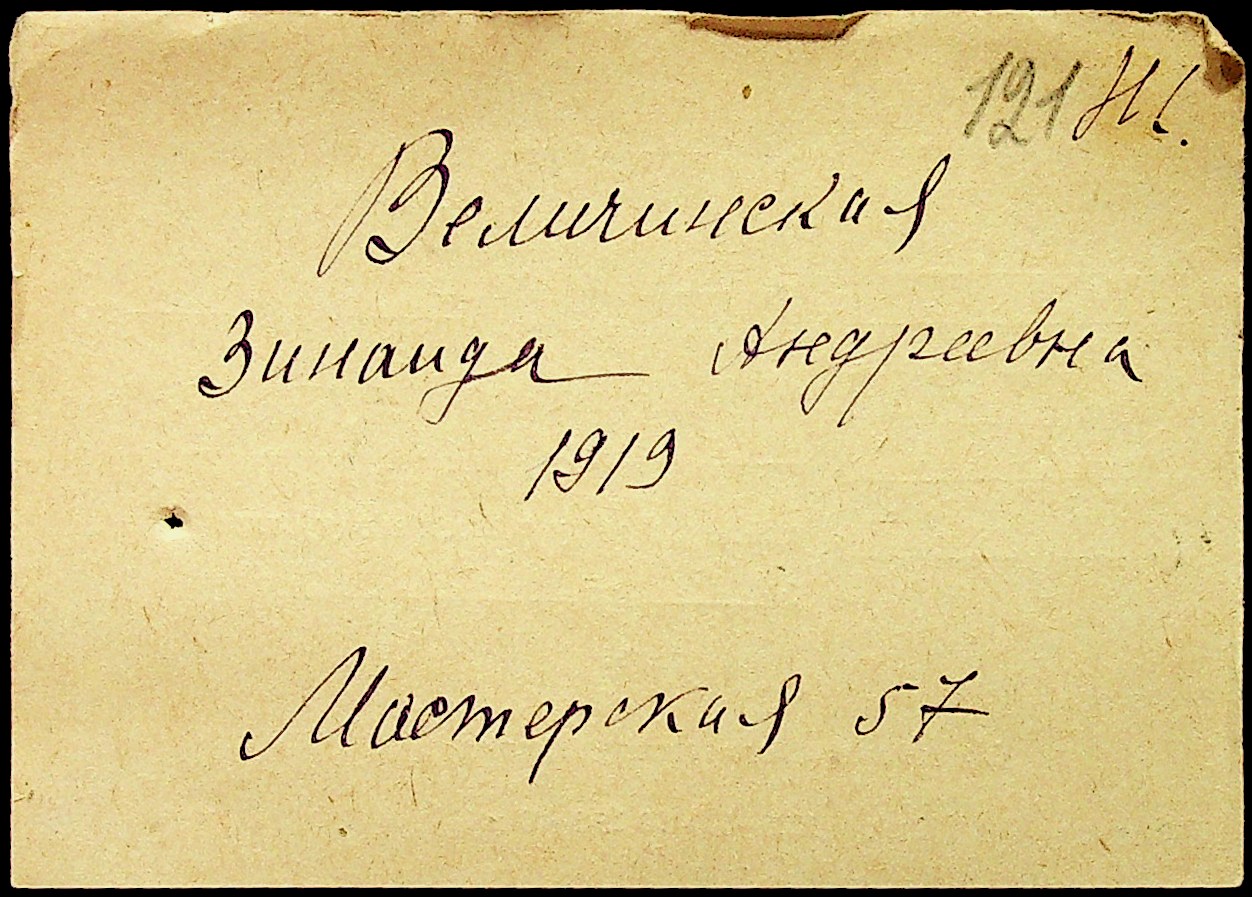 121
Величинская
Зинаида Андреевна
1919
Мастерская 57